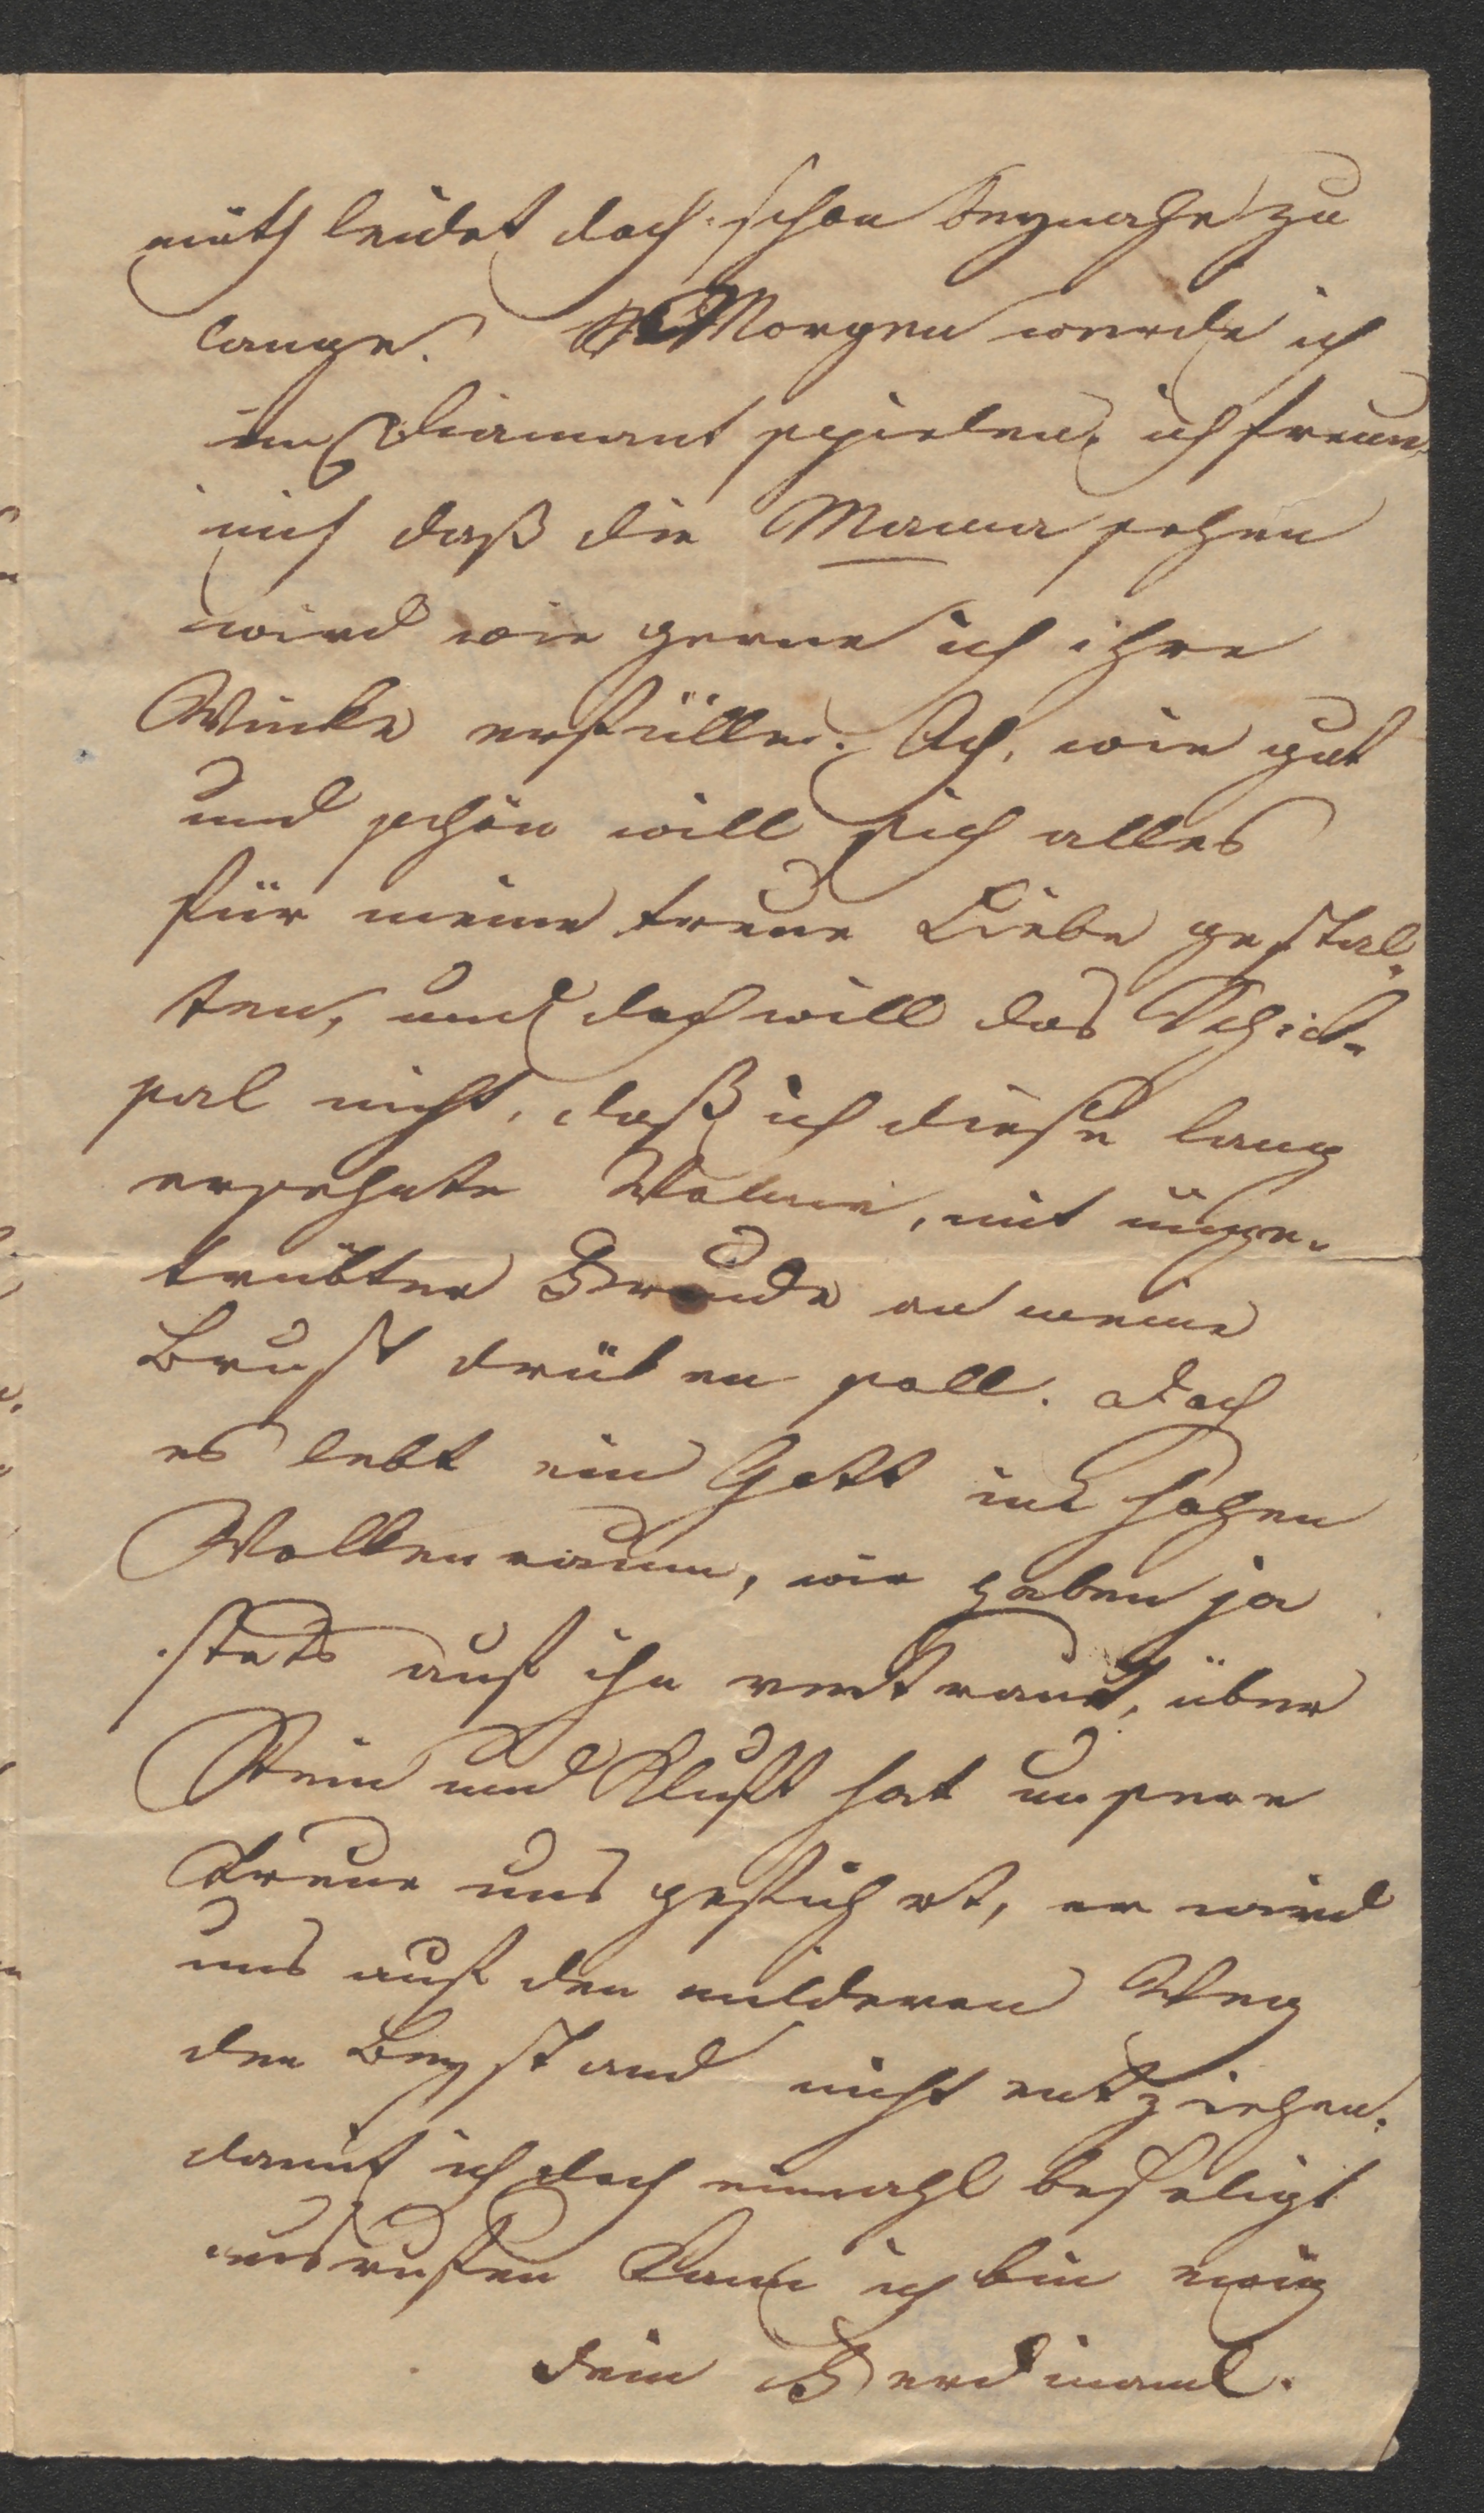 müth leidet doch schon beynahe zu
lange. Morgen werde ich
im Diamant spielen, ich freue
mich daß die Mama sehen
wird wie gerne ich ihre
Winke erfülle. Ach, wie gut
und schön will sich alles
für meine treue Liebe gestal-
ten, und doch will das Schick-
sal nicht, daß ich diese lang
ersehnte Wonne, mit unge-
trübter Freude an meine
Brust drüken soll. Doch
es lebt ein Gott im hohen
Wolkenraum, wir haben ja
stets auf ihn vertraut, über
Stein und Kluft hat unsere
Treue uns geführt, er wird
uns auf den milderen Weg
den Beystand nicht entziehen.
damit ich doch einmahl beseligt
ausrufen kann ich bin ewig
dein Ferdinand.